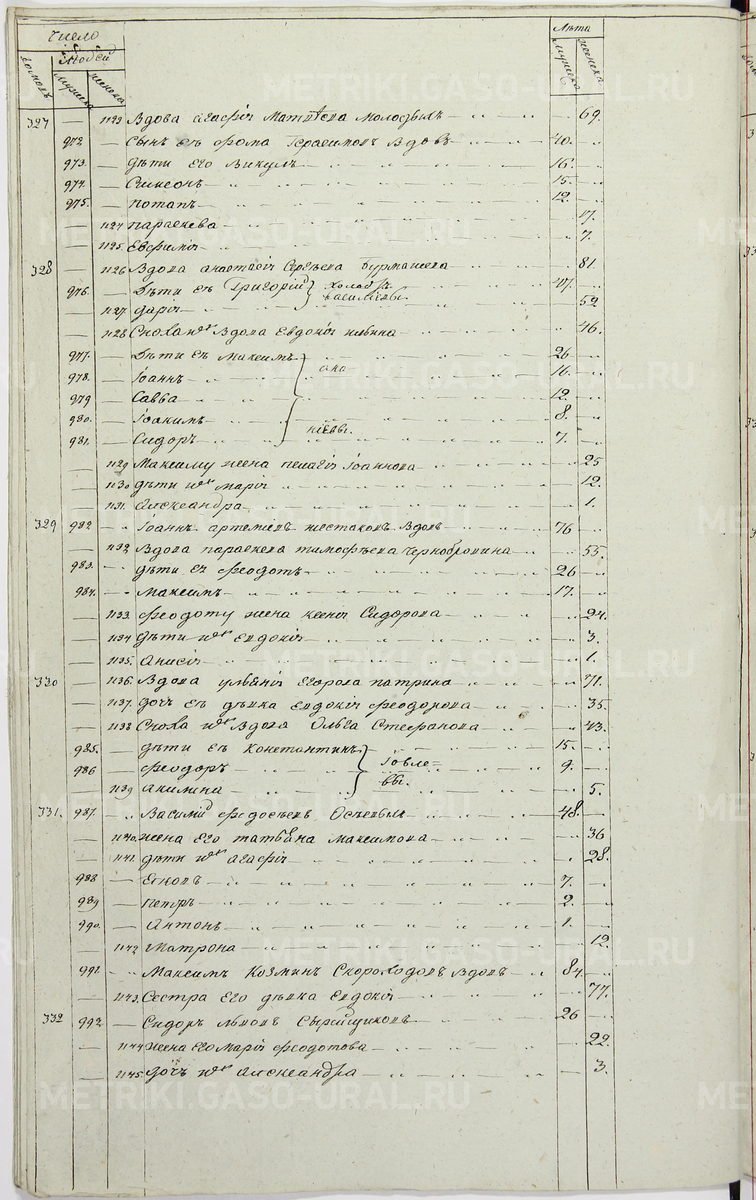 Число
Людей
Лѣта
домовъ мужска женска
мужска женска
327 — 1123 Вдова Агафія Матвѣева Молодыхъ 69.
972 — Сынъ ея Фома Герасимовъ Вдовъ 40.
973. — Дѣти его Викулъ 16.
974. — Симеонъ 15.
975. — Потапъ 12.
— 1124 Параскева 17.
— 1125. Евфимія 7.
328 — 1126 Вдова Анастасія Сергѣева Бурмашева 81.
976. — Дѣти ея Григорій 47.
Васильевы.
— 1127 Дарія 52
— 1128 Сноха Вдова Евдокія 46.
977. — Дѣти ея Максимъ 26
978. — Іоаннъ 16.
979 — Савва 12.
980. — Іоакимъ 8.
981. — Сидоръ 7.
— 1129 Максиму жена Пелагія Іоаннова 25
— 1130 Дѣти ихъ Марія 12.
— 1131. Александра 1.
329 982 Іоаннъ Артемьевъ Шестаковъ Вдовъ 76
— 1132 Вдова Параскева Тимофѣева Чернобровина 55.
983. Дѣти ея Феодотъ 26
984. Максимъ 17.
— 1133. Феодоту жена Ксенія Сидорова 24.
— 1134 Дѣти ихъ Евдокія 3.
— 1135. Анисія 1.
330 — 1136. Вдова Ульянія Егорова 71.
— 1137. Дочь ея дѣвка Евдокія Феодорова 35.
— 1138 Сноха Вдова Ольга Стефанова 43.
985. — Дѣти ея Константинъ 15.
986 — Феодоръ 9.
Іовле-
вы.
— 1139 Акилина 5.
331. 987. Василій Федосѣевъ 48.
— 1140. Жена его Татьяна Максимова 36
— 1141. Дѣти ихъ Агафія 28.
988 — 7.
989 — Петръ 2.
990. — Антонъ 1.
— 1142 Матрона 12
991 Максимъ Козминъ Скороходовъ Вдовъ 84.
— 1143. Сестра его дѣвка Евдокія 77.
332 992. — Сидоръ Львовъ Сырейщиковъ 26
— 1144 Жена его Марія Феодотова 22.
— 1145 Дочь ихъ Александра 3.
METRIKI.GASO-URAL.RU